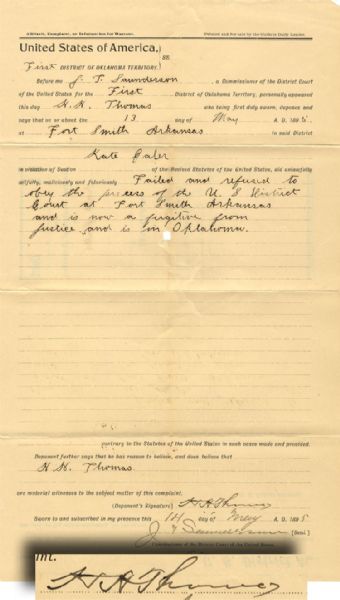 Affidavit, Complaint, or Information for Warrant.
United States of America, } ss.
First DISTRICT OF OKLAHOMA TERRITORY.
Before me J. T. Saunderson, a Commissioner of the District Court
of the United States for the First District of Oklahoma Territory, personally appeared
this day H. H. Thomas who being first duly sworn, deposes and
says that on or about the 13 day of May A. D. 1895,
at Fort Smith Arkansas in said District
Kate
in violation of Section of the Revised Statutes of the United States, did unlawfully
wilfully, maliciously and feloniously Failed and refused to
obey the process of the U. S District
Court at Fort Smith Arkansas
and is now a fugitive from
justice and is in Oklahoma.
contrary to the Statutes of the United States in such cases made and provided.
Deponent further says that he has reason to believe, and does believe that
H. H. Thomas
are material witnesses to the subject matter of this complaint.
(Deponent's Signature) H H Thomas
Sworn to and subscribed in my presence this 14 day of May A. D. 1895
J. T. Saunderson [Seal]
Commissioner of the District Court of the United States
int.
H H Thomas